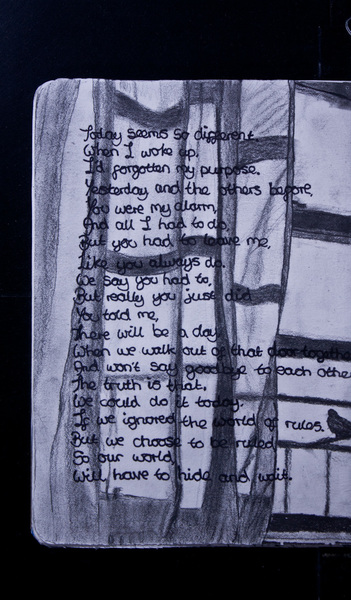 Today seems so different.
When I woke up.
I'd forgotten my purpose.
Yesterday and the others before,
You were my alarm,
And all I had to do.
But you had to leave me,
Like you always do.
We say you had to,
But really you just did
You told me,
There will be a day,
When we walk out of that door together
And won't say goodbye to each other
The truth is that,
We could do it today.
If we ignored the world of rules.
But we choose to be ruled
So our world,
Will have to hide and wait.